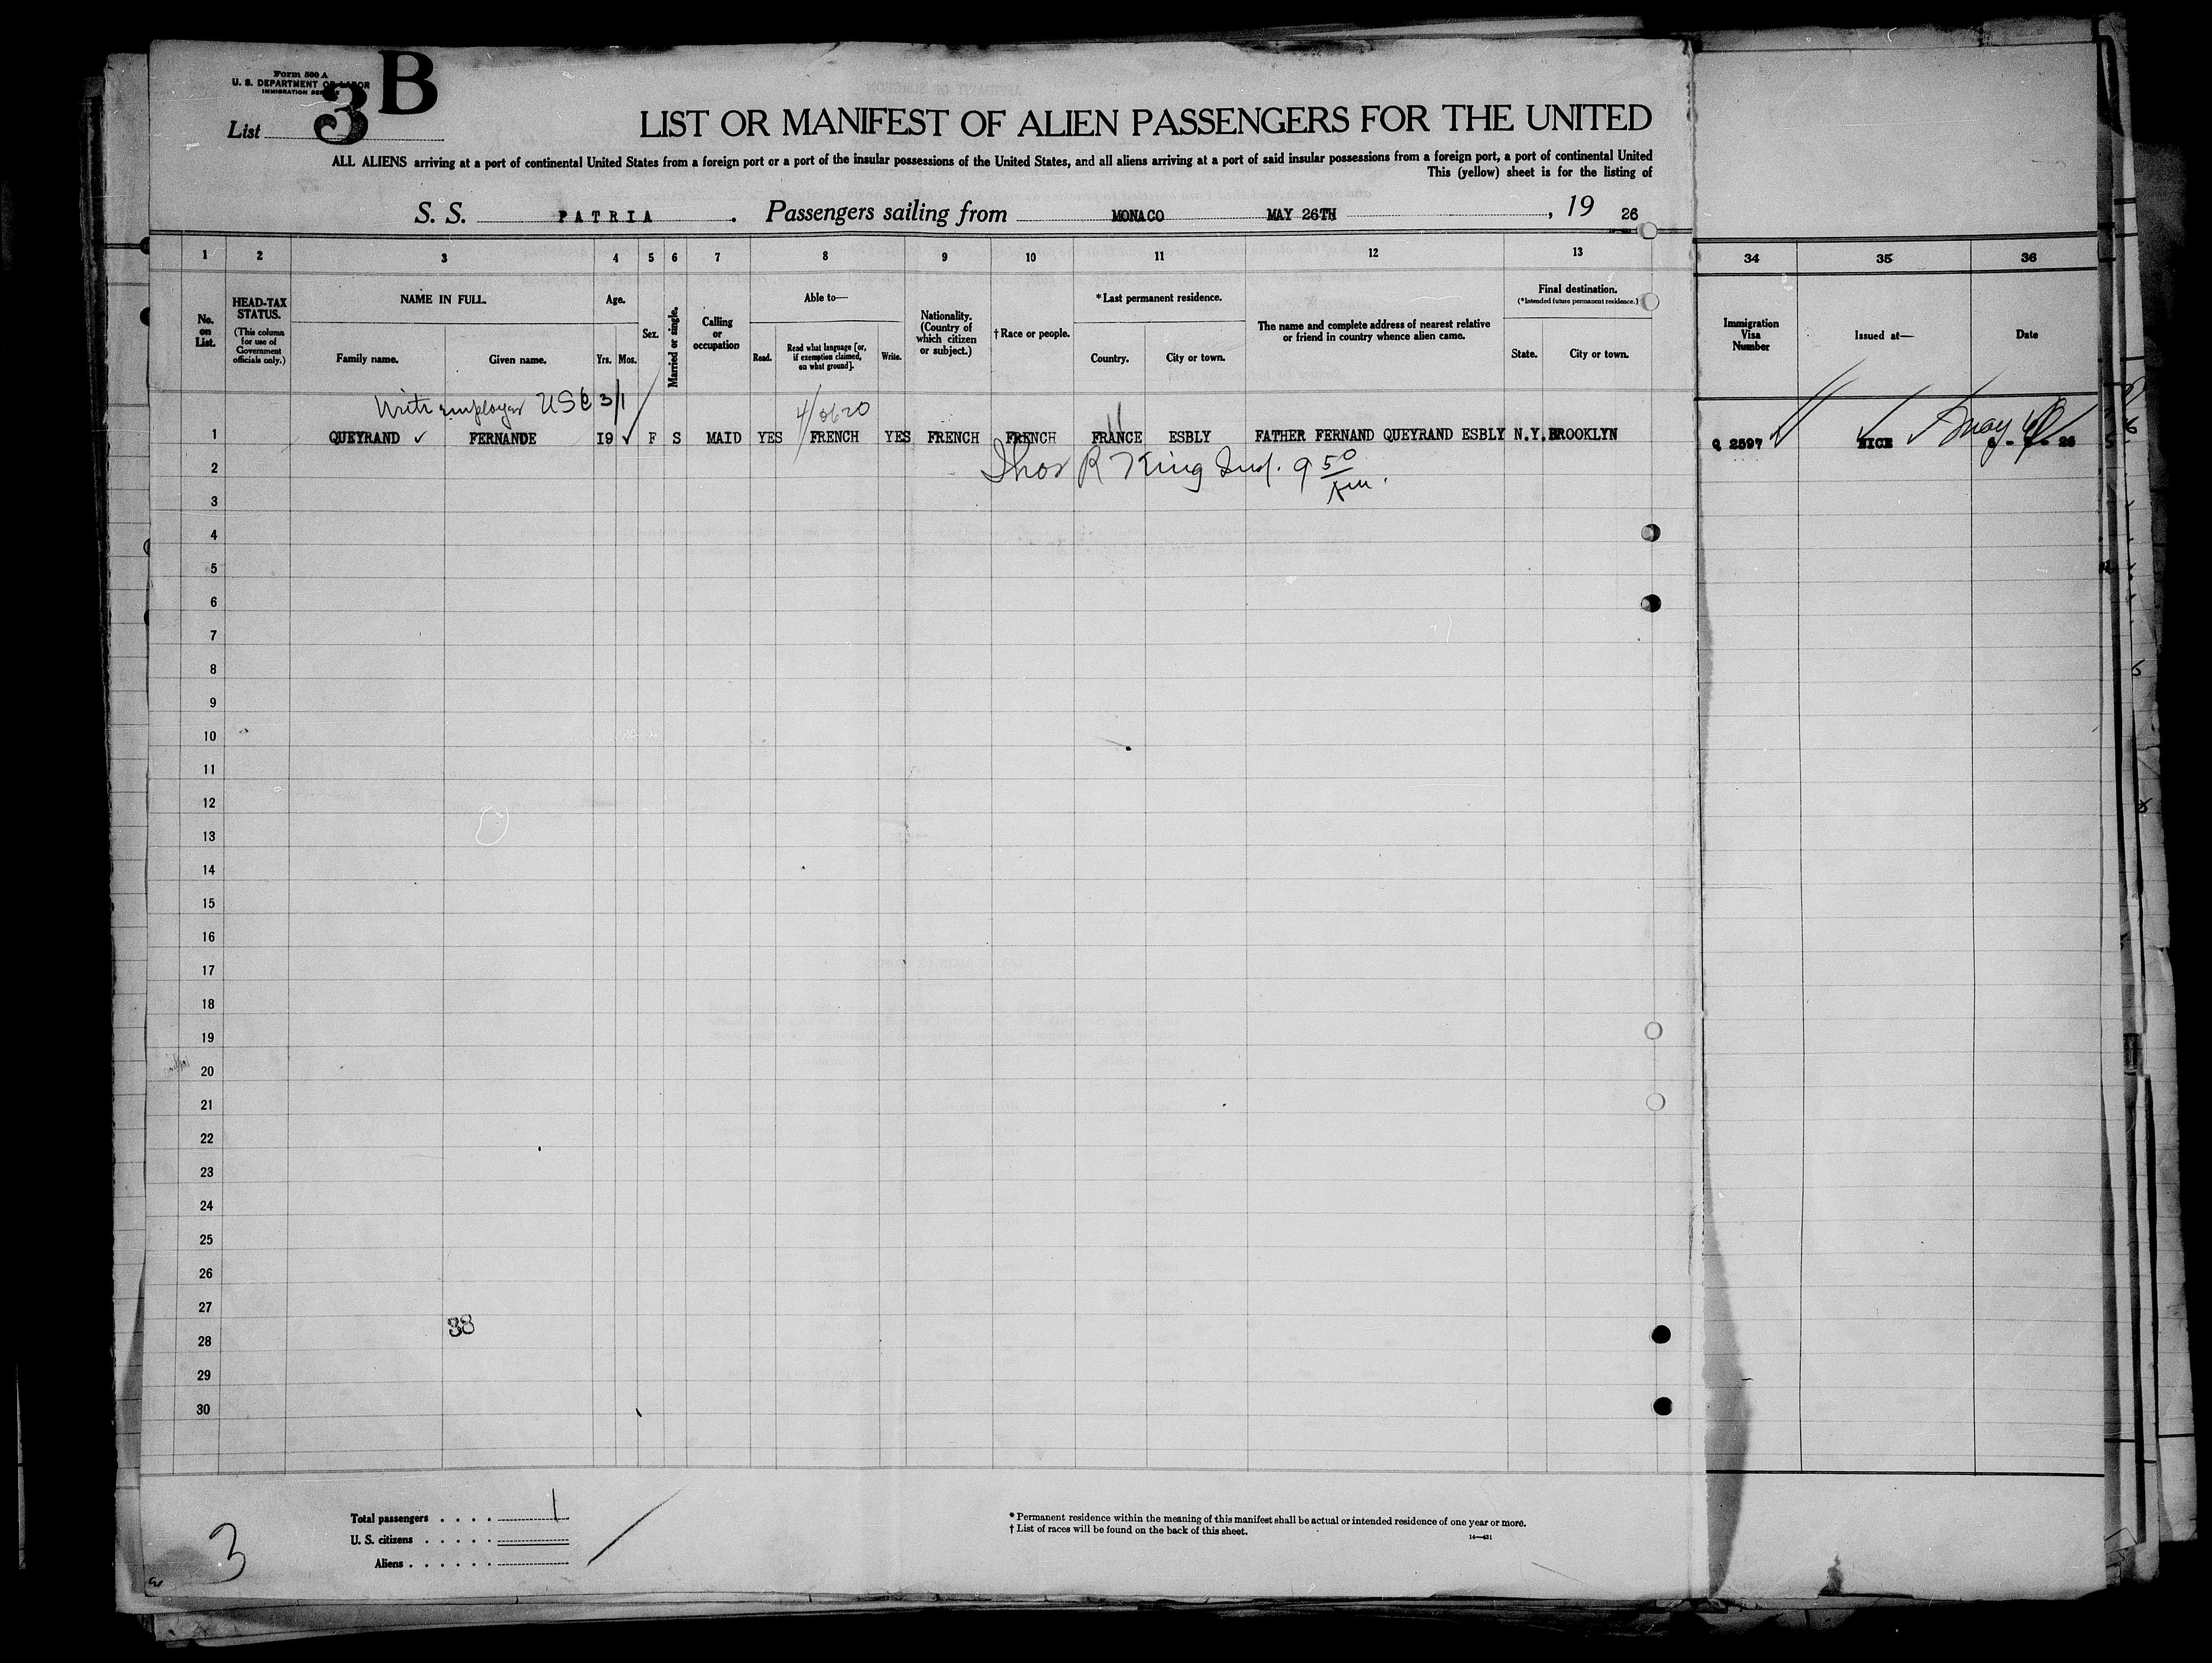 Form 500 A
U. S. DEPARTMENT OF LABOR
IMMIGRATION SERVICE
List 3 B
LIST OR MANIFEST OF ALIEN PASSENGERS FOR THE UNITED
ALL ALIENS arriving at a port of continental United States from a foreign port or a port of the insular possessions of the United States, and all aliens arriving at a port of said insular possessions from a foreign port, a port of continental United
This (yellow) sheet is for the listing of
S. S. PATRIA . Passengers sailing from MONACO MAY 26TH , 19 26
1 2 3 4 5 6 7 8 9 10 11 12 13 34 35 36
No. on List.
HEAD-TAX STATUS.
(This column for use of Government officials only.)
NAME IN FULL.
Family name. Given name.
Age.
Yrs. Mos.
Sex.
Married or single.
Calling or occupation
Able to—
Read. Read what language [or, if exemption claimed, on what ground]. Write.
Nationality. (Country of which citizen or subject.)
† Race or people.
* Last permanent residence.
Country. City or town.
The name and complete address of nearest relative or friend in country whence alien came.
Final destination.
(* Intended future permanent residence.)
State. City or town.
Immigration Visa Number
Issued at—
Date
With employer USC 3/1
1 QUEYRAND ✓ FERNANDE 19 ✓ F S MAID YES FRENCH YES FRENCH FRENCH FRANCE ESBLY FATHER FERNAND QUEYRAND ESBLY N.Y. BROOKLYN Q 2597 NICE 26
2 Thos R King Insp. 9 50 Am.
3
4
5
6
7
8
9
10
11
12
13
14
15
16
17
18
19
20
21
22
23
24
25
26
27
38
28
29
30
Total passengers . . . . 1
U. S. citizens . . . . .
Aliens . . . . . .
3
* Permanent residence within the meaning of this manifest shall be actual or intended residence of one year or more.
† List of races will be found on the back of this sheet.
14—431